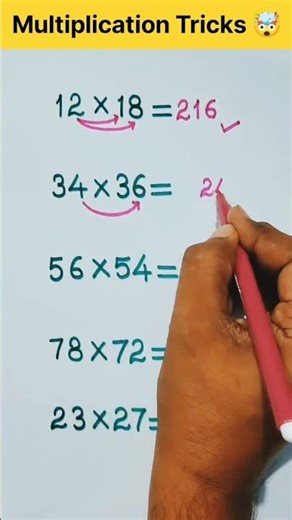 Multiplication Tricks 🤯
12×18=216
34×36= 24
56×54=
78×72=
23×27=